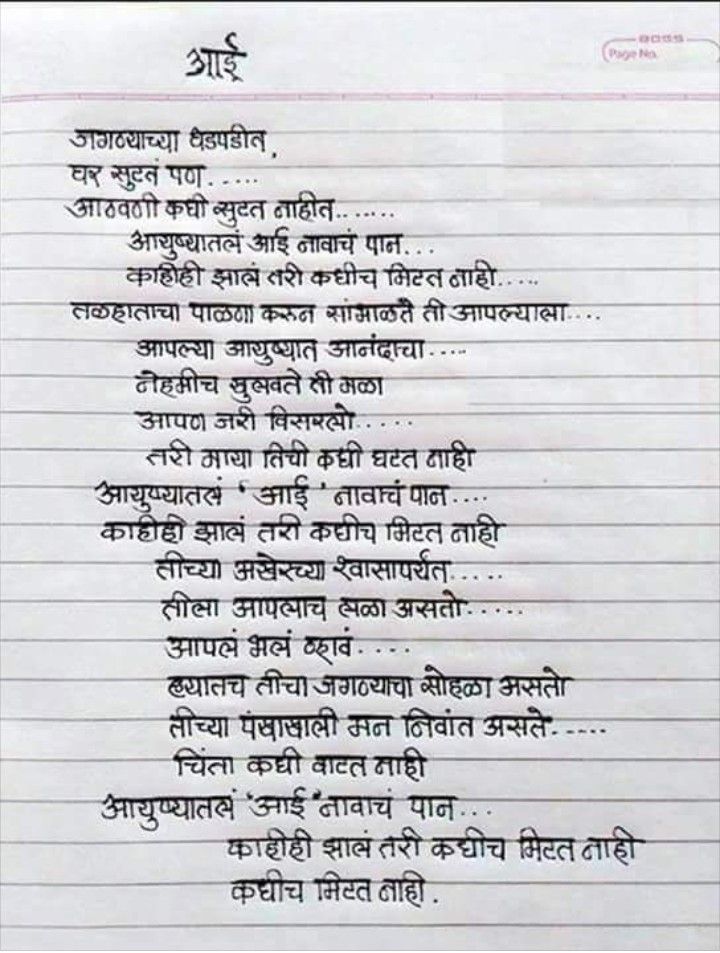 आई
BOSS
Page No.
जगण्याच्या धडपडीत,
घर सुटतं पण.....
आठवणी कधी सुटत नाहीत.......
आयुष्यातलं आई नावाचं पान...
काहीही झालं तरी कधीच मिटत नाही.....
तळहाताचा पाळणा करून सांभाळते ती आपल्याला....
आपल्या आयुष्यात आनंदाचा.....
नेहमीच फुलवते ती मळा
आपण जरी विसरलो.....
तरी माया तिची कधी घटत नाही
आयुष्यातलं ' आई ' नावाचं पान....
काहीही झालं तरी कधीच मिटत नाही
तीच्या अखेरच्या श्वासापर्यंत.....
तीला आपलाच लळा असतो.....
आपलं भलं व्हावं....
ह्यातच तीचा जगण्याचा सोहळा असतो
तीच्या पंखाखाली मन निवांत असते.-----
चिंता कधी वाटत नाही
आयुष्यातलं 'आई' नावाचं पान...
काहीही झालं तरी कधीच मिटत नाही
कधीच मिटत नाही.